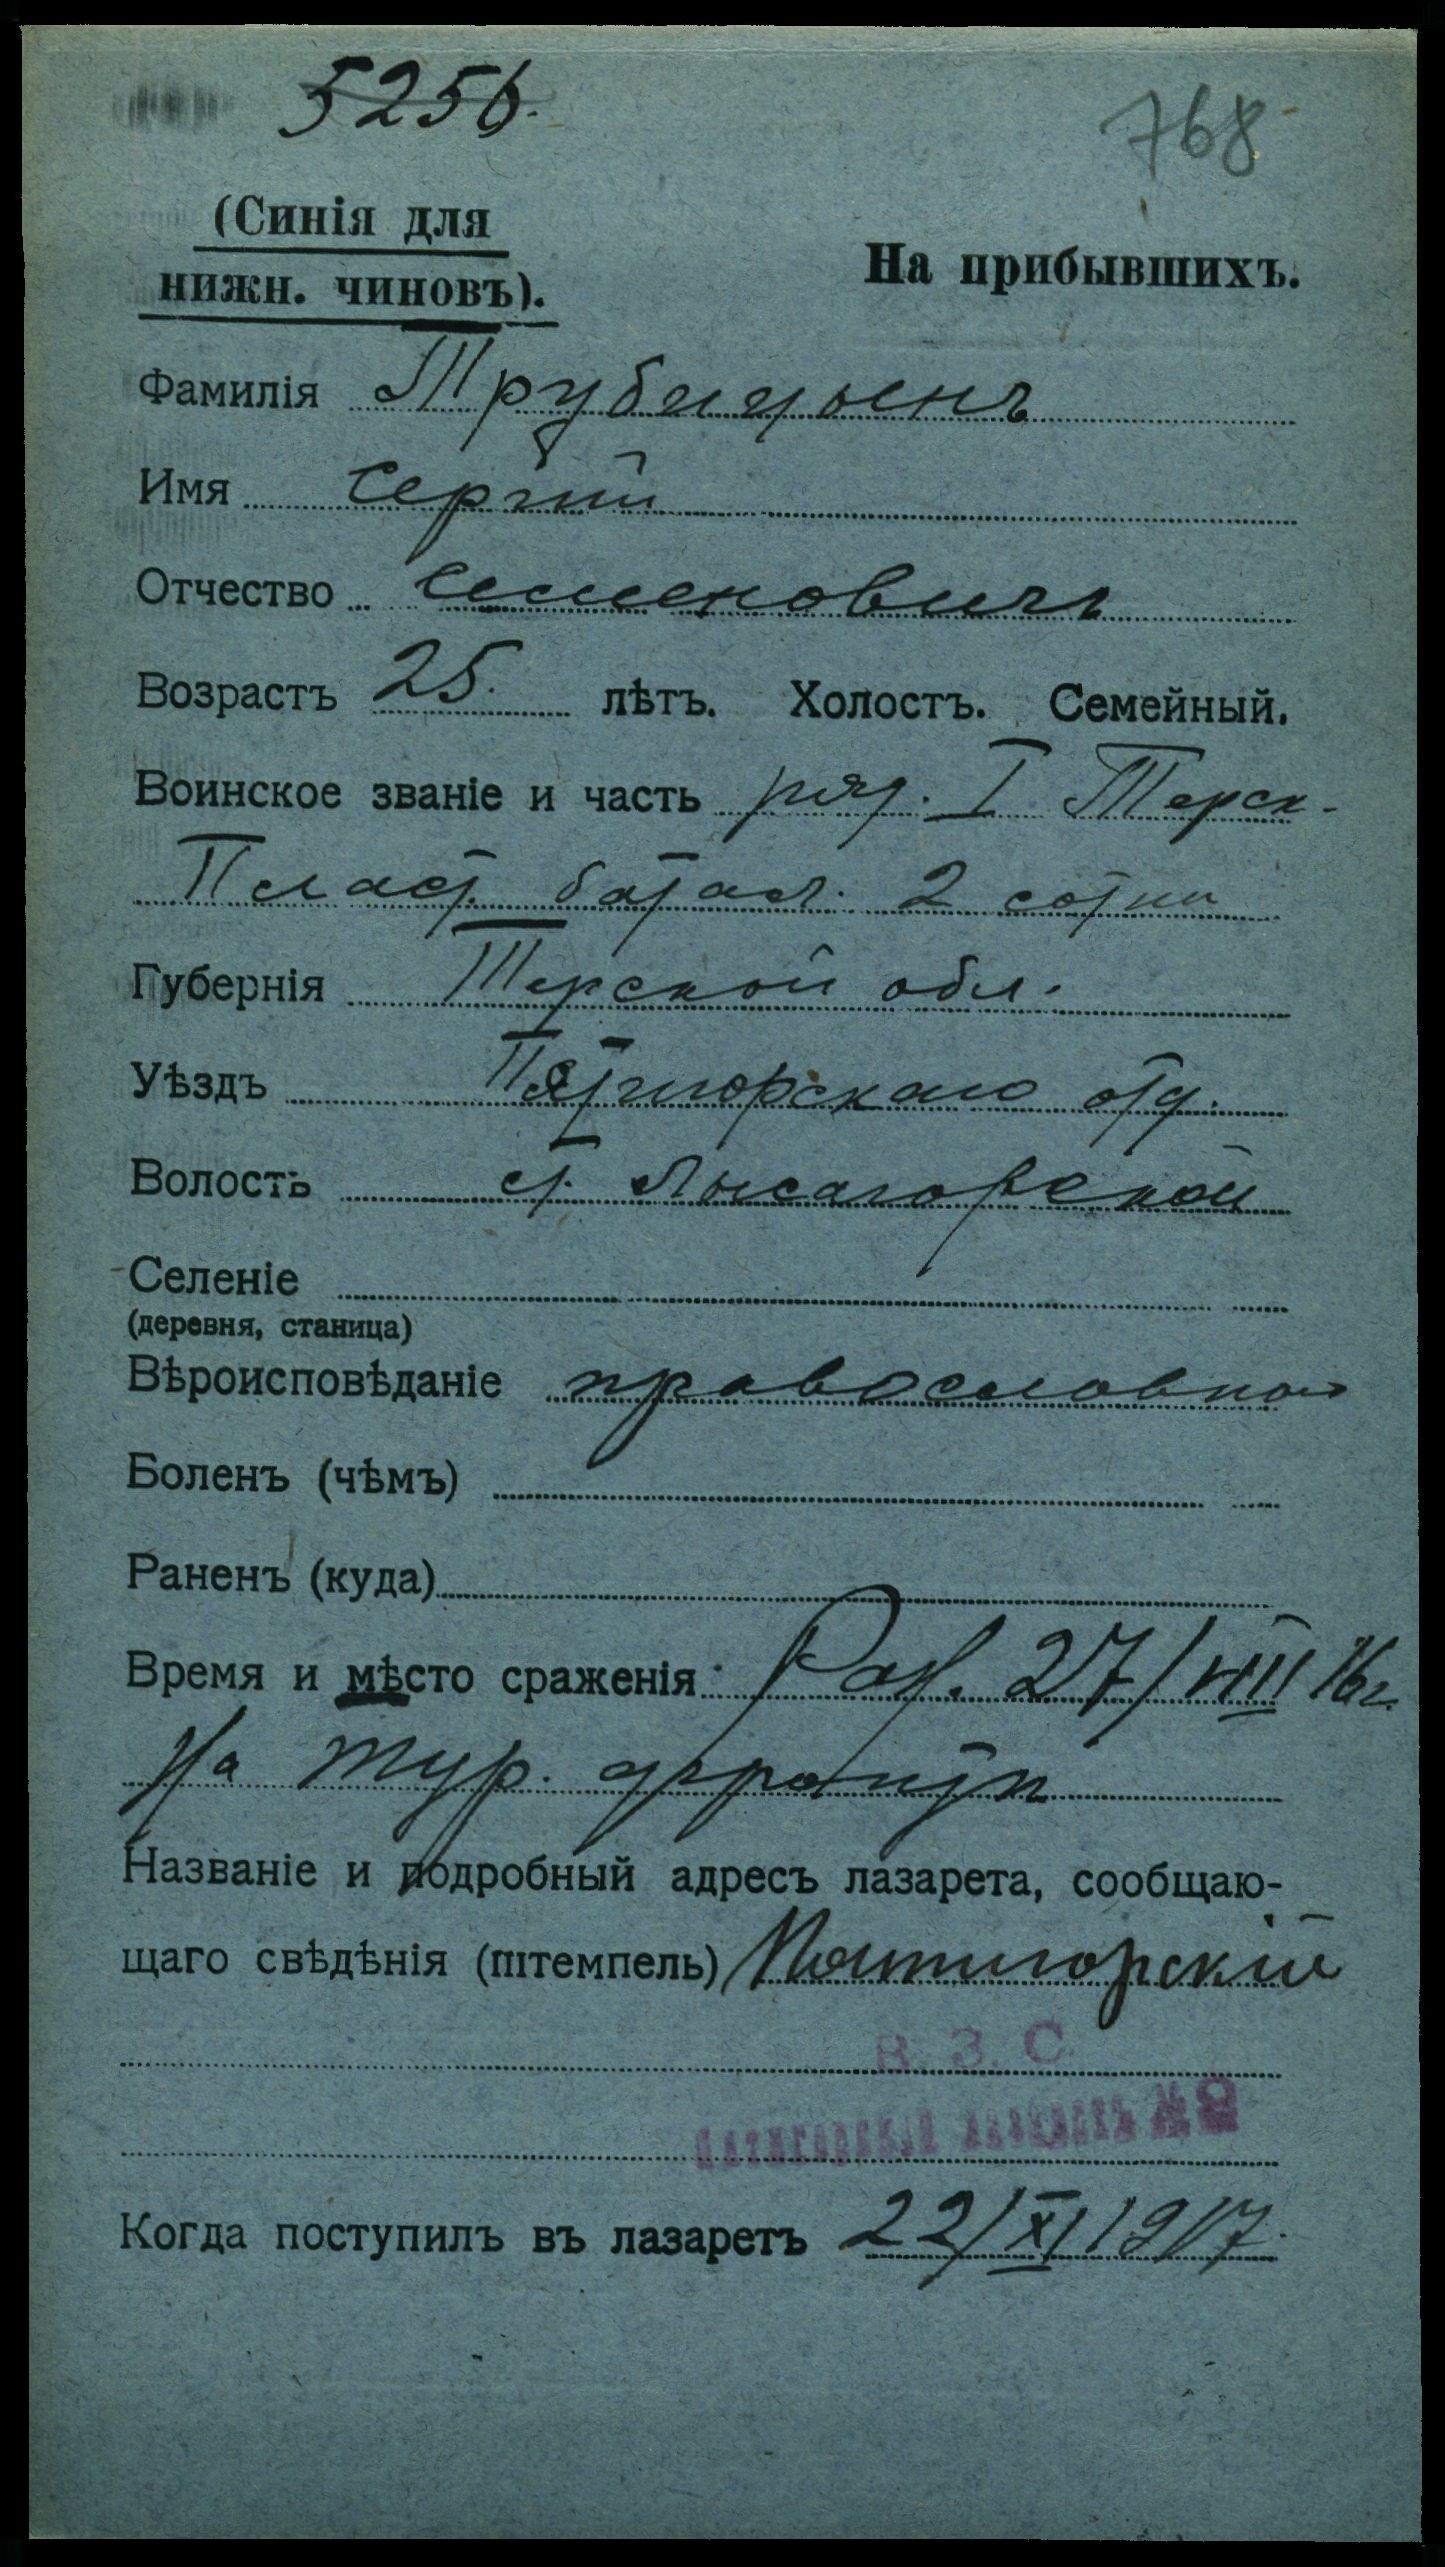 5256.
768
(Синія для
нижн. чиновъ).
На прибывшихъ.
Фамилія Трубицынъ
Имя Сергій
Отчество Семеновичъ
Возрастъ 25. лѣтъ. Холостъ. Семейный.
Воинское званіе и часть ряд. I Терск.
Пласт. батал. 2 сотни
Губернія Терской обл.
Уѣздъ Пятигорскаго отд.
Волость ст. Лысагорской
Селеніе
(деревня, станица)
Вѣроисповѣданіе православное
Боленъ (чѣмъ)
Раненъ (куда)
Время и мѣсто сраженія: 27/VIII 16г.
На тур. фронтѣ
Названіе и подробный адресъ лазарета, сообщаю-
щаго свѣдѣнія (штемпель) Пятигорскій
В. З. С.
Пятигорскій лазаретъ № 2
Когда поступилъ въ лазаретъ 22/XI 1917.